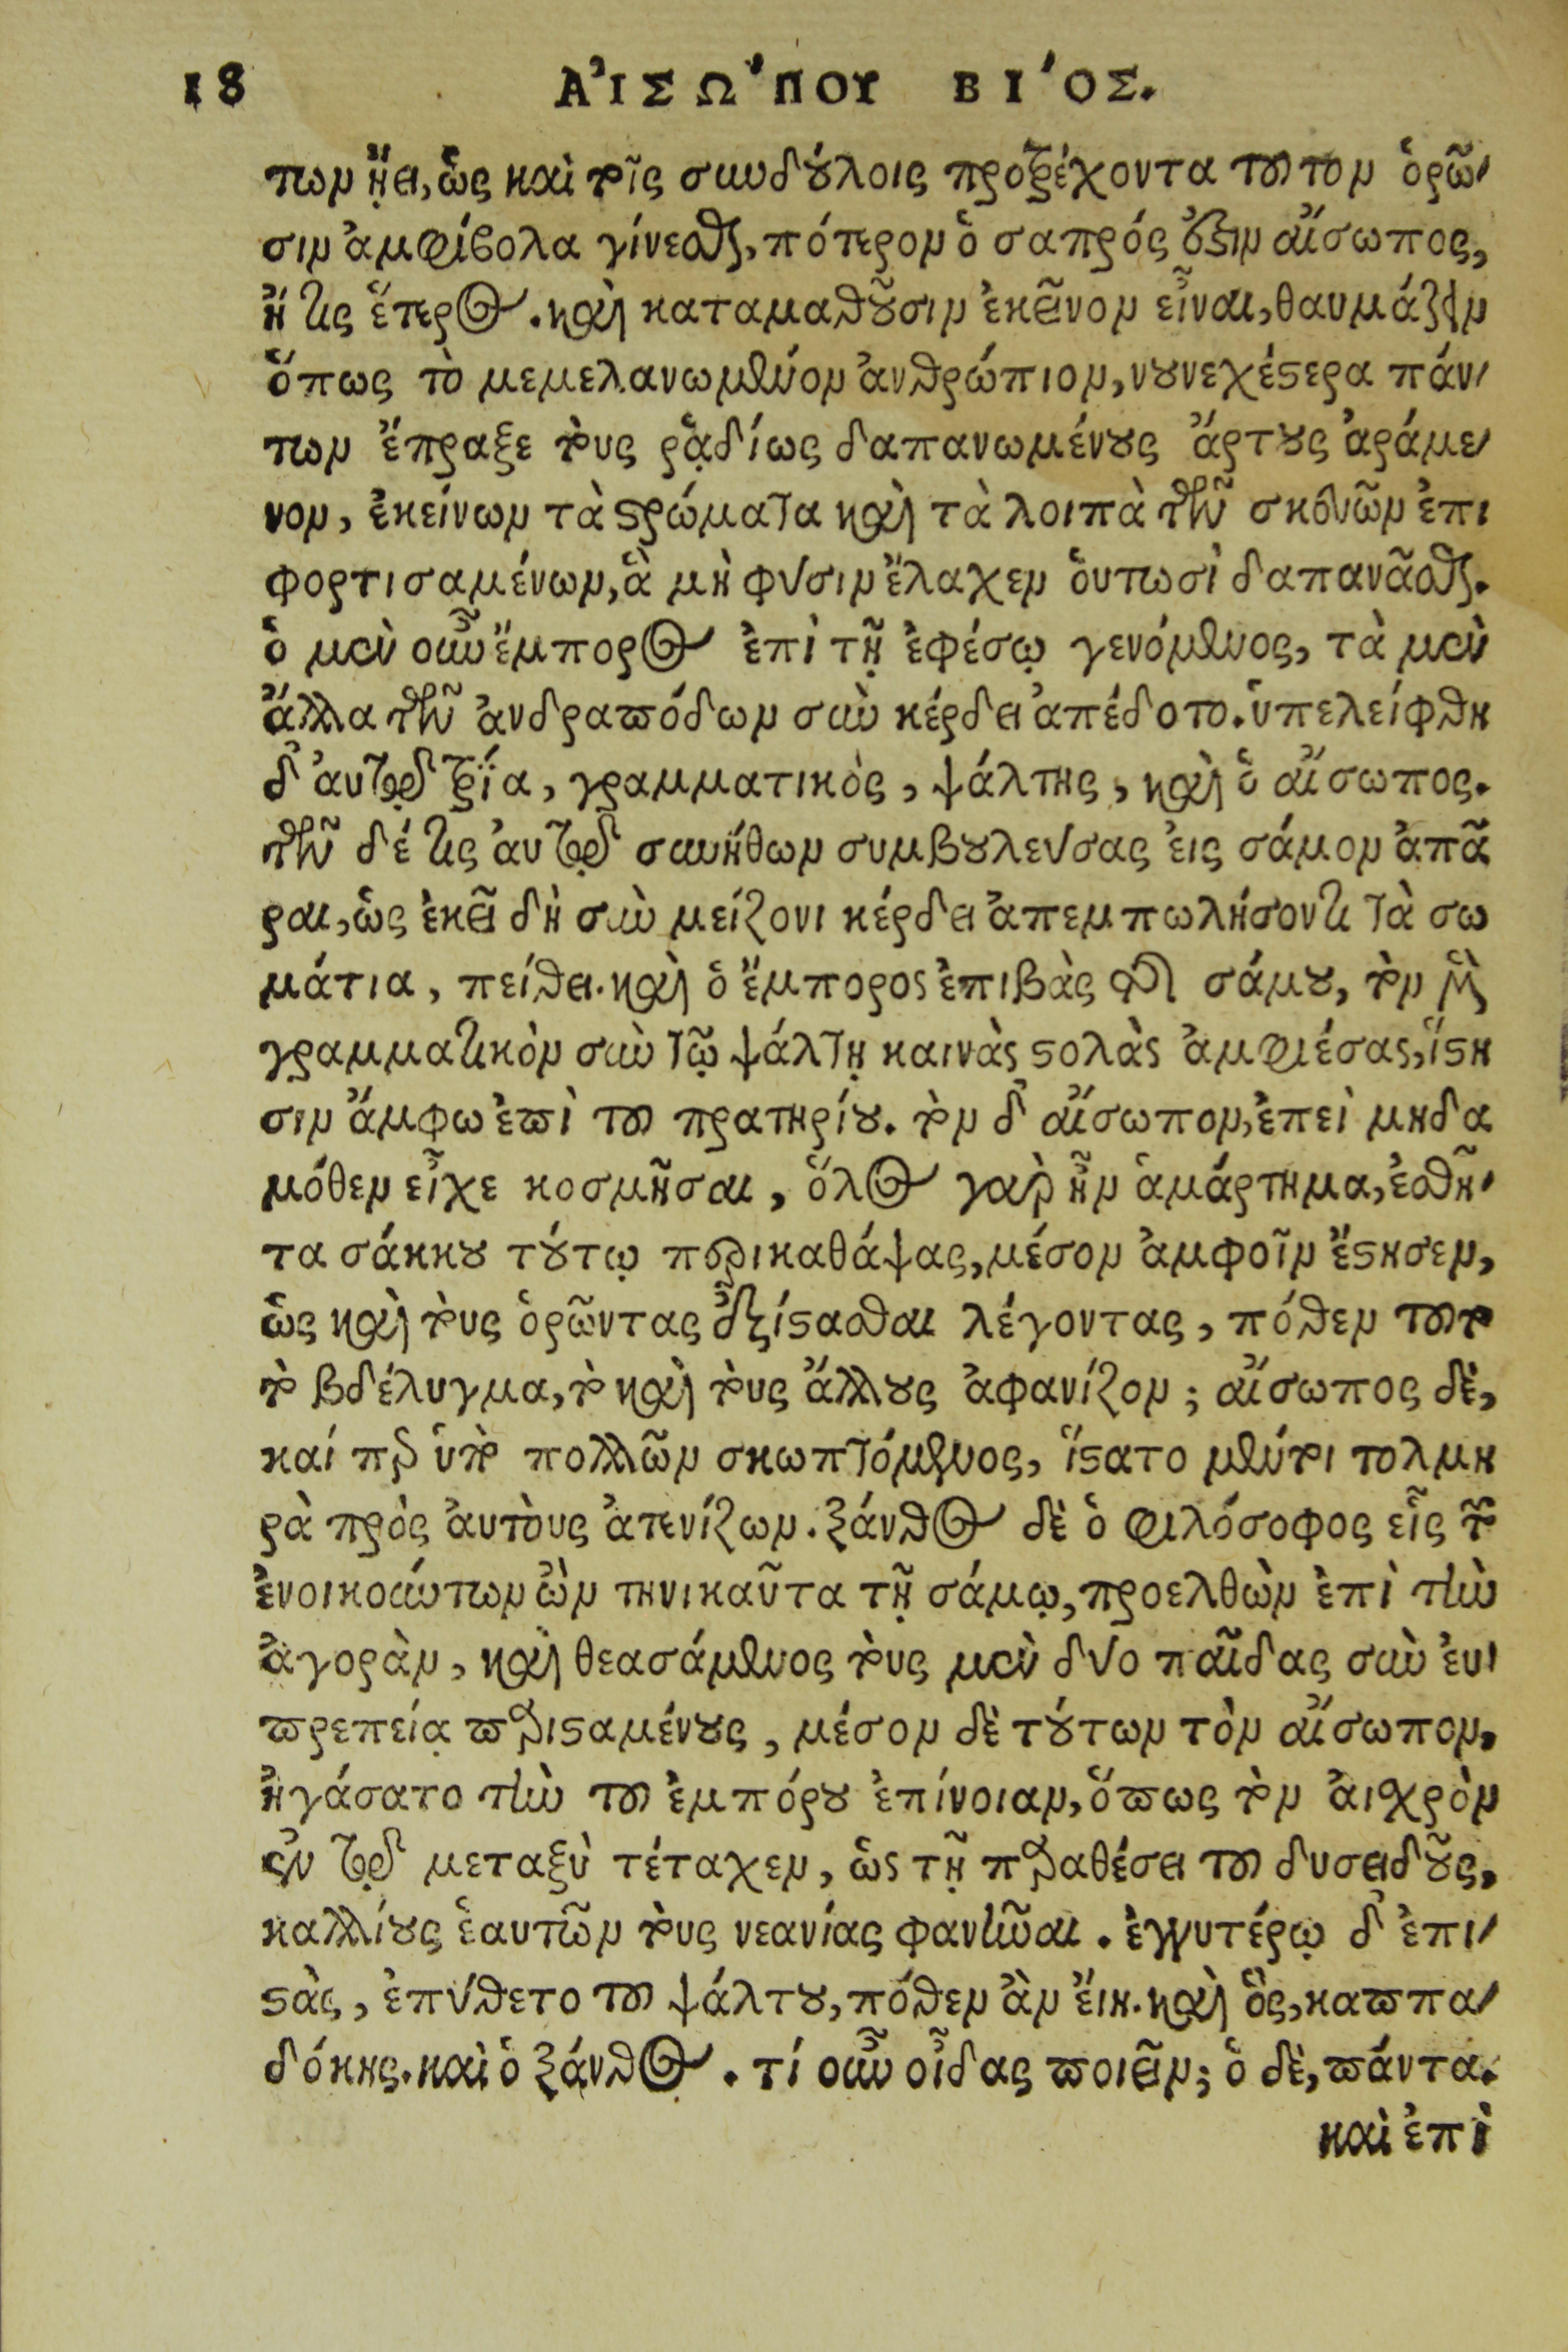 18 ΑἸΣΩΠΟΥ ΒΙΟΣ.
των ᾔει, ὡς καὶ τοῖς συνδούλοις προτρέχοντα τοῦτον ὁρῶ-
σιν ἀμφίβολα γίνεσθαι, πότερον ὁ σαπρός ἐστιν αἴσωπος,
ἤ τις ἕτερος. καὶ καταμαθοῦσιν ἐκεῖνον εἶναι, θαυμάζειν
ὅπως τὸ μεμελανωμένον ἀνθρώπιον, νουνεχέστερα πάν-
των ἔπραξε τοὺς ῥᾳδίως δαπανωμένους ἄρτους ἀράμε-
νον, ἐκείνων τὰ στρώματα καὶ τὰ λοιπὰ τῶν σκευῶν ἐπι
φορτισαμένων, ἃ μὴ φύσιν ἔλαχεν ὁυτωσὶ δαπανᾶσθαι.
ὁ μὲν οὖν ἔμπορος ἐπὶ τῇ ἐφέσῳ γενόμενος, τὰ μὲν
ἄλλα τῶν ἀνδραπόδων σὺν κέρδει ἀπέδοτο. ὑπελείφθη
δ' αυτῷ τρία, γραμματικὸς, ψάλτης, καὶ ὁ αἴσωπος.
τῶν δέ τις ἀυτῷ συνήθων συμβουλεύσας ἐις σάμον ἀπᾶ
ραι, ὡς ἐκεῖ δὴ σὺν μείζονι κέρδει ἀπεμπωλήσοντι τὰ σω
μάτια, πείθει. καὶ ὁ ἔμπορος ἐπιβὰς τῆς σάμου, τὸν μὲν
γραμματικὸν σὺν τῷ ψάλτῃ καινὰς στολὰς ἀμφιέσας, ἵστη
σιν ἄμφω ἐπὶ τοῦ πρατηρίου. τὸν δ' αἴσωπον, ἐπεὶ μηδα
μόθεν εἶχε κοσμῆσαι, ὅλος γὰρ ἦν ἁμάρτημα, ἐσθῆ-
τα σάκκου τούτῳ περικαθάψας, μέσον ἀμφοῖν ἔστησεν,
ὡς καὶ τοὺς ὁρῶντας ἐξίστασθαι λέγοντας, πόθεν τοῦτο
τὸ βδέλυγμα, τὸ καὶ τοὺς ἄλλους ἀφανίζον; αἴσωπος δὲ,
καίπερ ὑπὸ πολλῶν σκωπτόμενος, ἵστατο μέντοι τολμη
ρὰ πρὸς ἀυτοὺς ἀτενίζων. ξάνθος δὲ ὁ φιλόσοφος εἷς τῶν
ἐνοικούντων ὢν τηνικαῦτα τῇ σάμῳ, προελθὼν ἐπὶ τὴν
ἀγορὰν, καὶ θεασάμενος τοὺς μὲν δύο παῖδας σὺν ἐυ-
πρεπείᾳ περισταμένους, μέσον δὲ τούτων τὸν αἴσωπον,
ἠγάσατο τὴν τοῦ ἐμπόρου ἐπίνοιαν, ὅπως τὸν ἀισχρὸν
ἐν τῷ μεταξὺ τέταχεν, ὡς τῇ παραθέσει τοῦ δυσειδοῦς,
καλλίους ἑαυτῶν τοὺς νεανίας φανῆναι. ἐγγυτέρῳ δ' ἐπι-
στὰς, ἐπύθετο τοῦ ψάλτου, πόθεν ἂν ἔιη. καὶ ὃς, καππα-
δόκης. καὶ ὁ ξάνθος. τί οὖν οἶδας ποιεῖν; ὁ δὲ, πάντα.
καὶ ἐπὶ